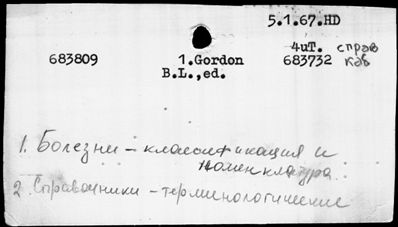 5.1.67.HD
4чит. справ
683809 1.Gordon 683732 каб
B.L.,ed.
1. Болезни – классификация и
номенклатура
2 Справочники – терминологические